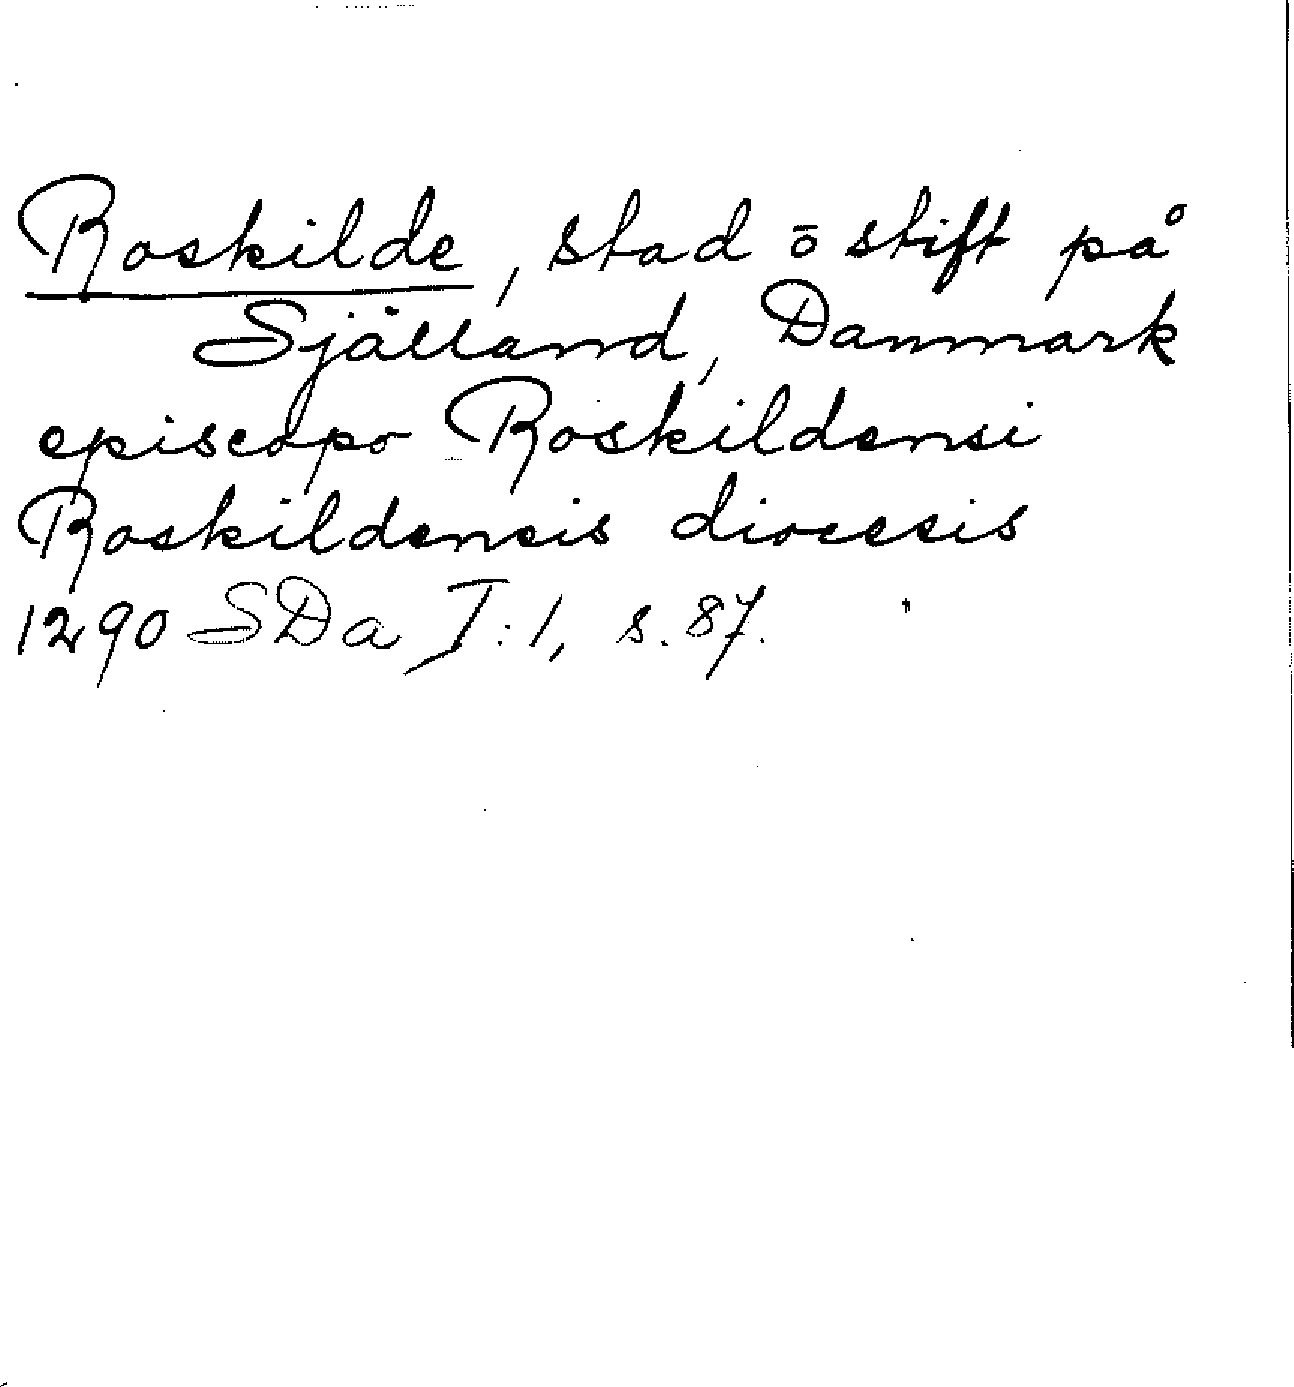 Roskilde, stad ō stift på
Själland, Danmark
episcopo Roskildensi
Roskildensis diocesis
1290 SDa I:1, s. 87.